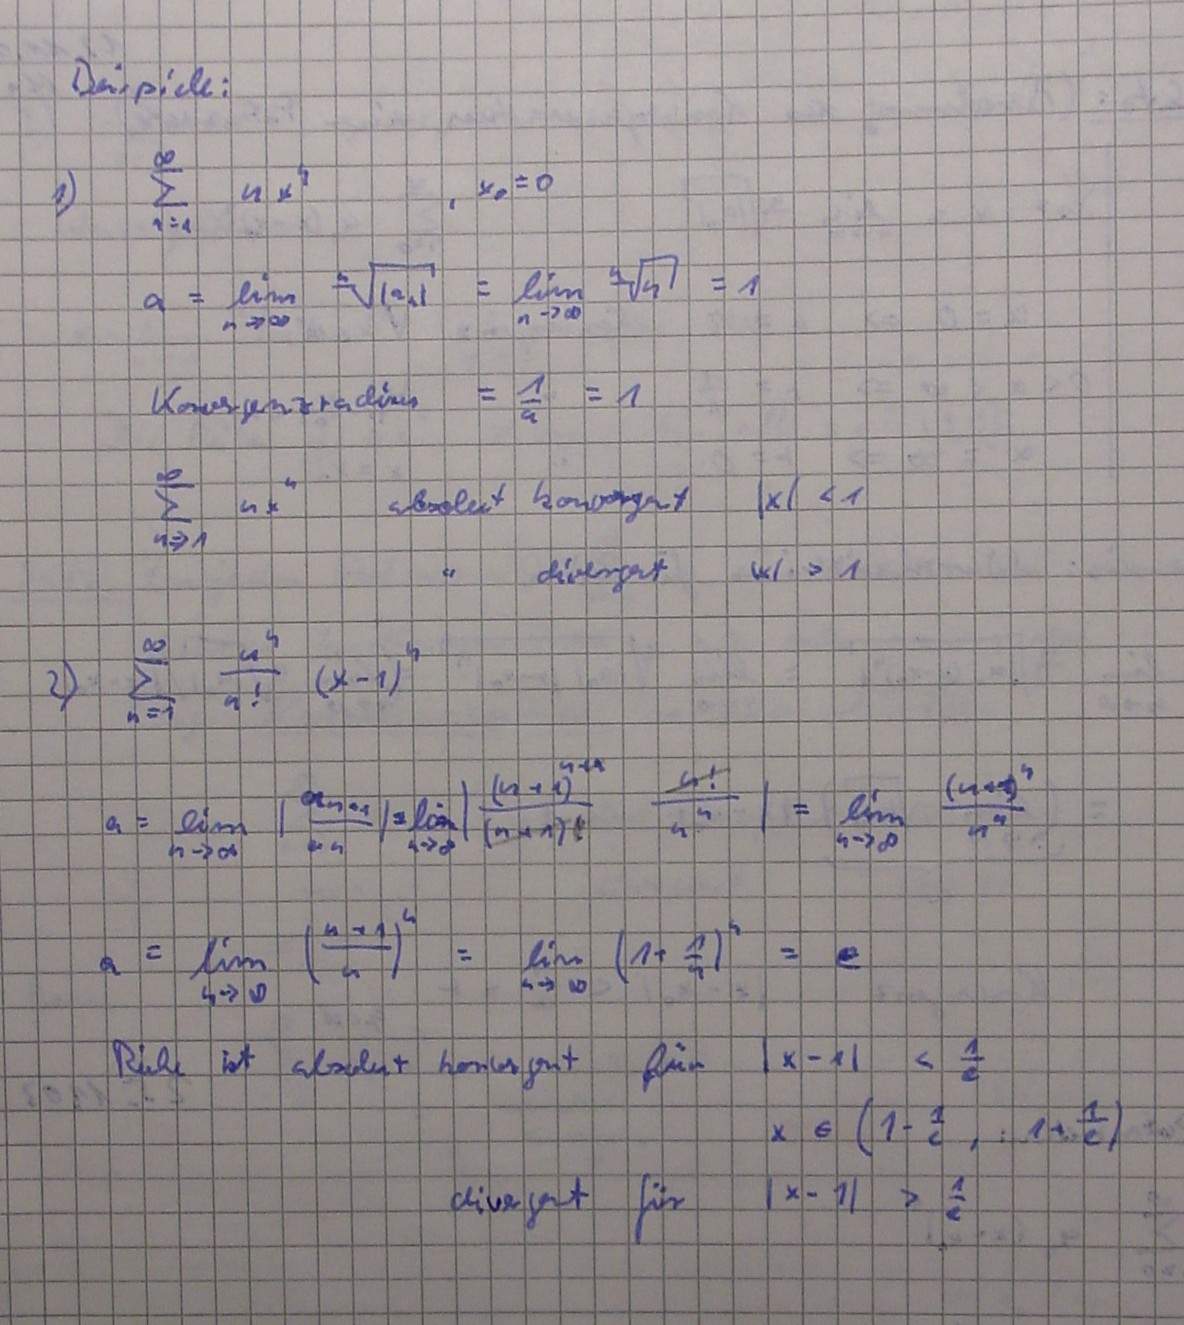 Beispiele:
1) ∑_{n=1}^{∞} n x^n , x₀ = 0
a = lim_{n→∞} ⁿ√|aₙ| = lim_{n→∞} ⁿ√n = 1
Konvergenzradius = 1/a = 1
∑_{n→1}^{∞} n x^n absolut konvergent |x| < 1
" divergent |x| > 1
2) ∑_{n=1}^{∞} n^n/n! (x-1)^n
a = lim_{n→∞} |a_{n+1}/a_n| = lim_{n→∞} | (n+1)^{n+1}/(n+1)! n!/n^n | = lim_{n→∞} (n+1)^n/n^n
a = lim_{n→∞} ((n+1)/n)^n = lim_{n→∞} (1+1/n)^n = e
Reihe ist absolut konvergent für |x-1| < 1/e
x ∈ (1-1/e , 1+1/e)
divergent für |x-1| > 1/e